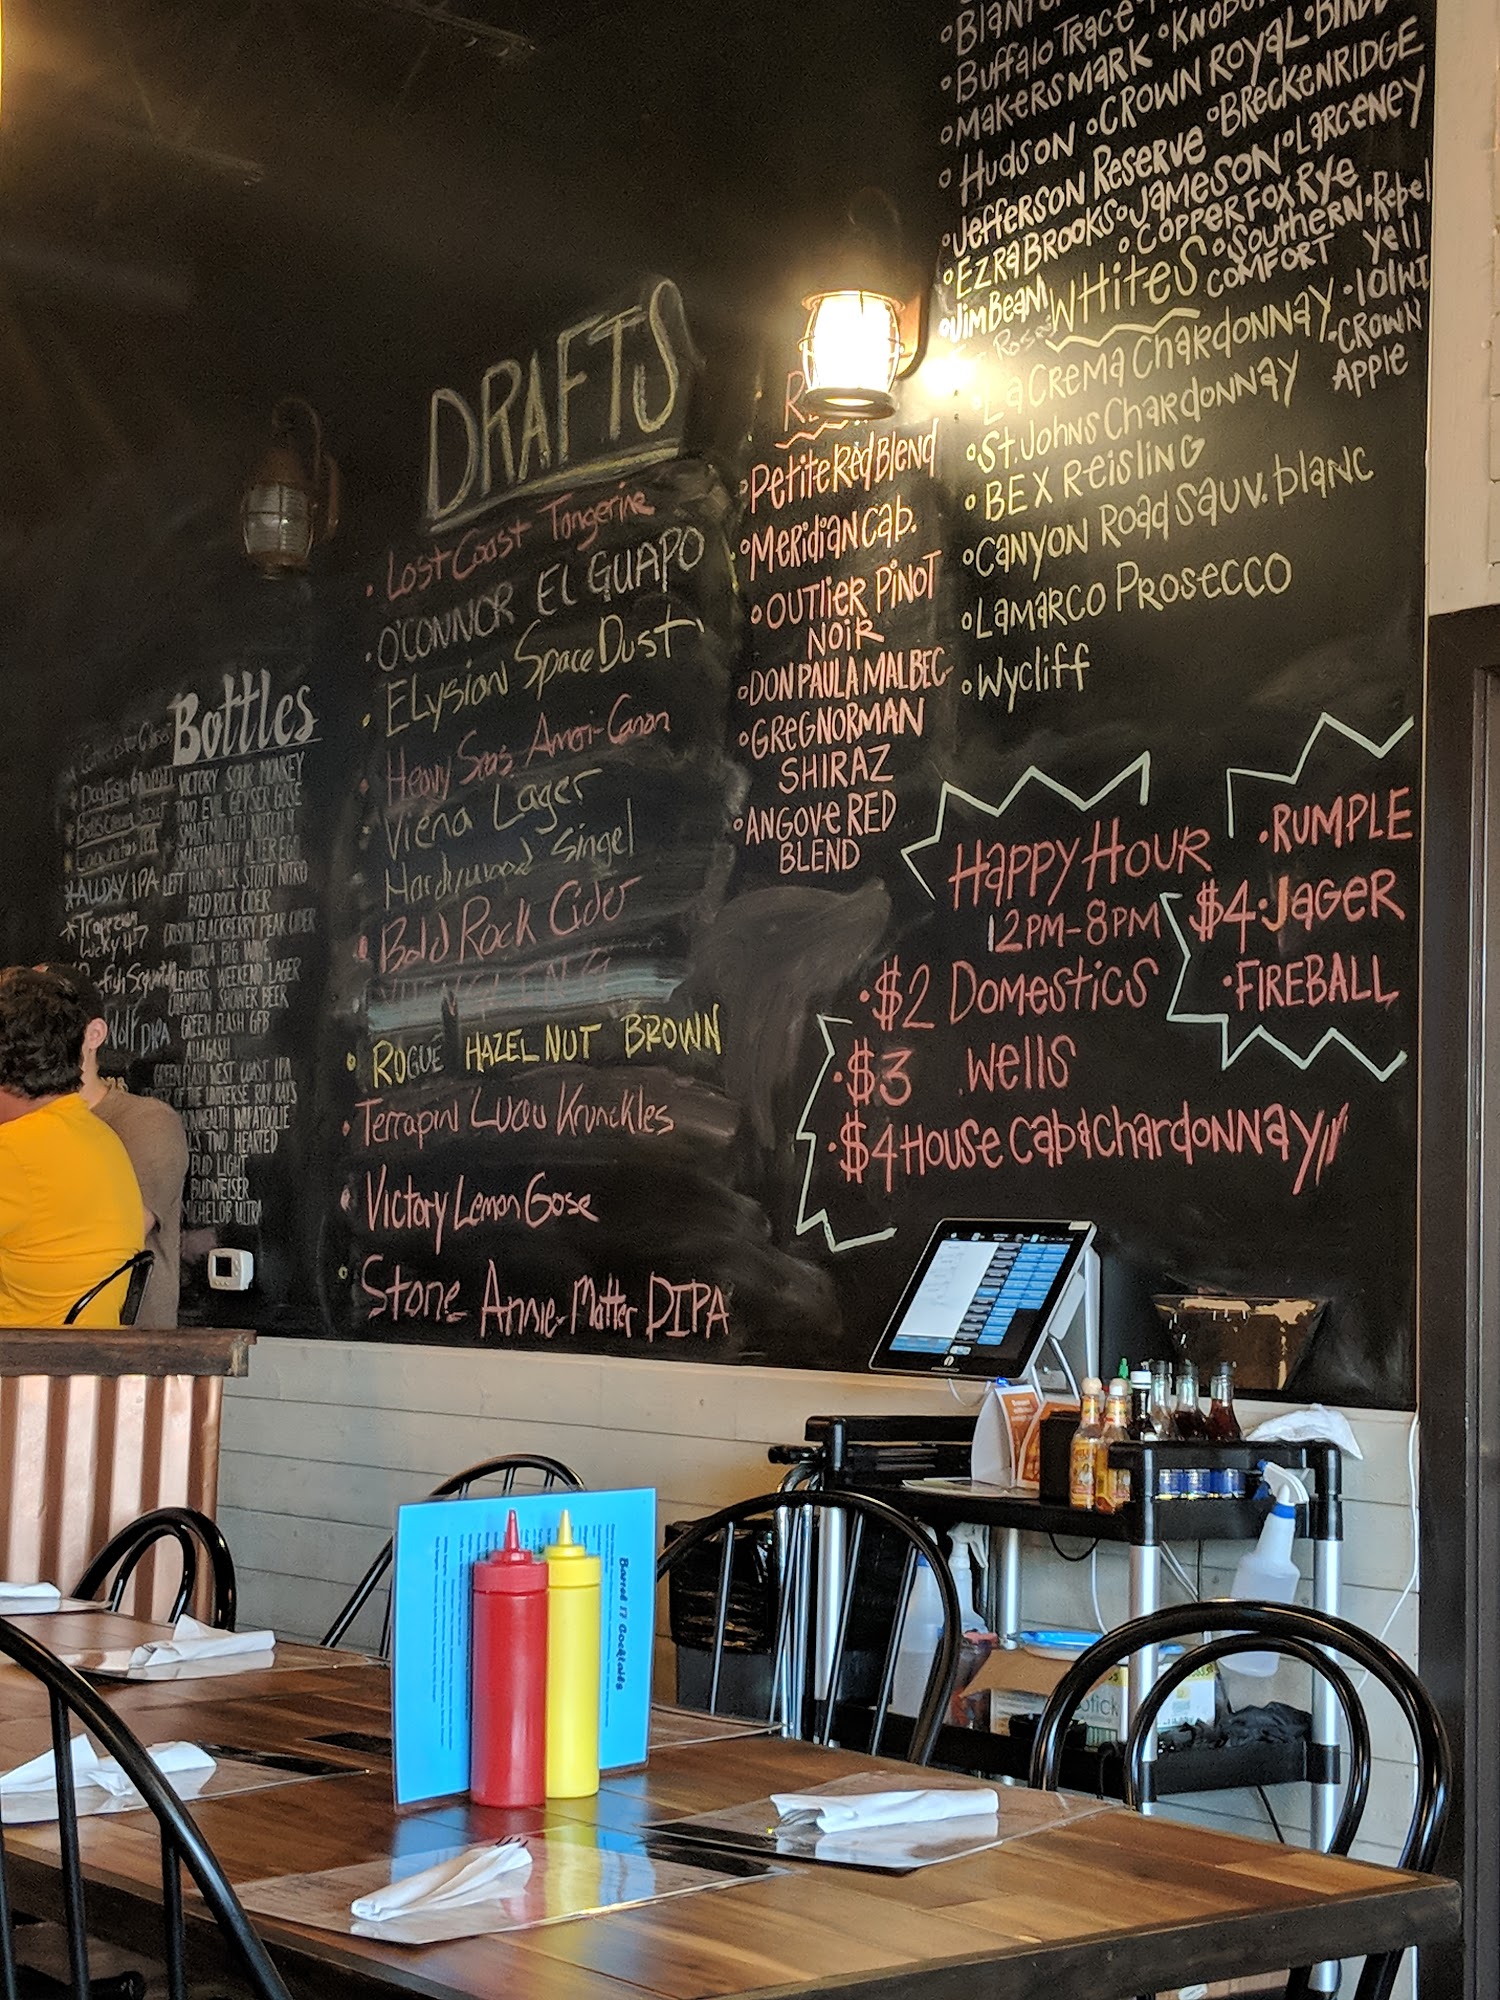 Buffalo Trace
Makers Mark °Knob
Hudson °Crown Royal
°Jefferson Reserve °Breckenridge
°Ezra Brooks °Jameson °Larceney
°Copper Fox Rye
°Jim Beam °Southern Comfort •Rebel Yell
•Crown Apple
Whites
La Crema Chardonnay
°St. Johns Chardonnay
°BEX Reisling
°Canyon Road Sauv. blanc
°Lamarco Prosecco
°Wycliff
°Petite Red Blend
°Meridian Cab.
°Outlier Pinot
Noir
°Don Paula Malbec
°Greg Norman
Shiraz
°Angove Red
Blend
DRAFTS
• Lost Coast Tangerine
• O'Connor El Guapo
• Elysion Space Dust
• Heavy Seas Ameri-Canon
Viena Lager
Hardywood Singel
• Bold Rock Cider
• Rogue Hazel Nut Brown
• Terrapin Luau Krunckles
• Victory Lemon Gose
• Stone Annie-Matter DIPA
Bottles
Victory Sour Monkey
Two Evil Geyser Gose
Smartmouth Notch 9
Smartmouth Alter Ego
Left Hand Milk Stout Nitro
Bold Rock Cider
Crispin Blackberry Pear Cider
Kona Big Wave
Weekend Lager
Champion Shower Beer
Green Flash GFB
Allagash
Green Flash West Coast IPA
of the Universe Ray Rays
Wapatoolie
Two Hearted
Bud Light
Budweiser
Michelob Ultra
*Allday IPA
*Trapezium
Lucky 47
DIPA
Happy Hour
12PM-8PM
•$2 Domestics
•$3 Wells
•$4 House Cab & Chardonnay
•Rumple
$4•Jager
•Fireball
Barrel 17 Cocktails